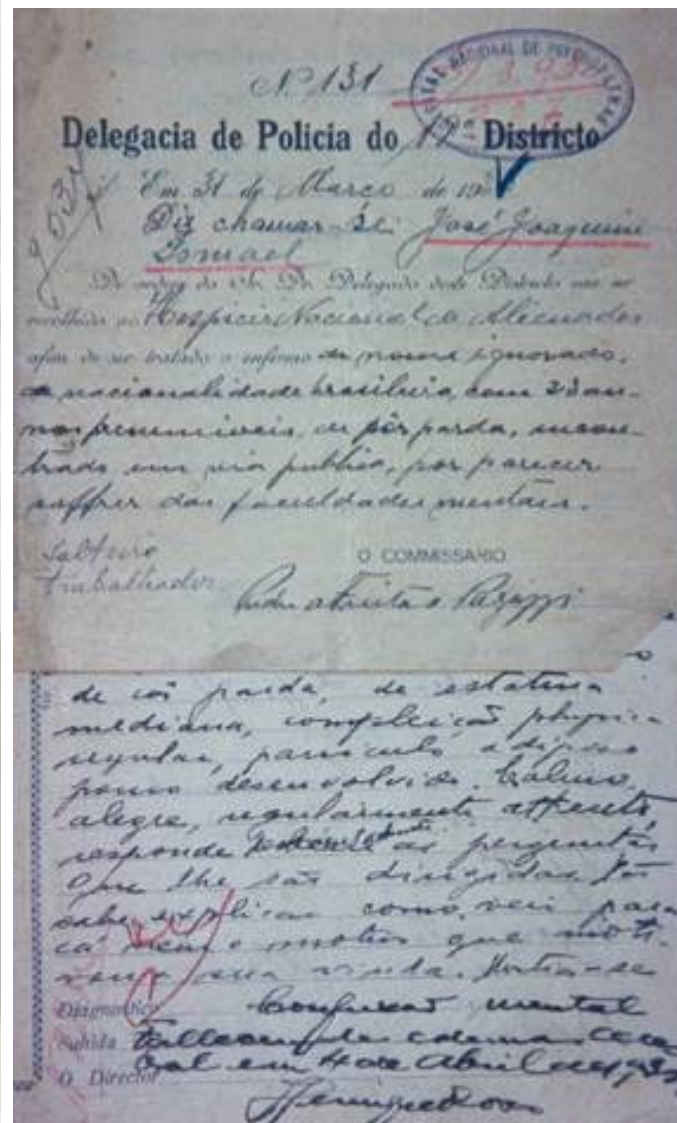 Nº 131
Delegacia de Policia do 17º Districto
Em 31 de Março de 19
Diz chamar-se José Joaquim
Ismael
De ordem do Sr. Dr. Delegado deste Districto vae ser
recolhido ao Hospicio Nacional de Alienados
afim de ser tratado o enfermo de nome ignorado,
de nacionalidade brasileira, com 23 an-
nos presumiveis, de côr parda, encon-
trado em via publica, por parecer
soffrer das faculdades mentaes.
Solteiro
trabalhador
O COMMISSARIO
de côr parda, de estatura
mediana, compleição physica
regular, panniculo adiposo
pouco desenvolvido. Calmo,
alegre, regularmente attento,
responde ás perguntas
que lhe são dirigidas. Não
sabe explicar como veio para
cá nem o motivo que moti-
vou a sua vinda. Mostra-se
Diagnostico Confusão mental
Sahida Falleceu de edema cere-
bral em 4 de Abril de 193
O Director